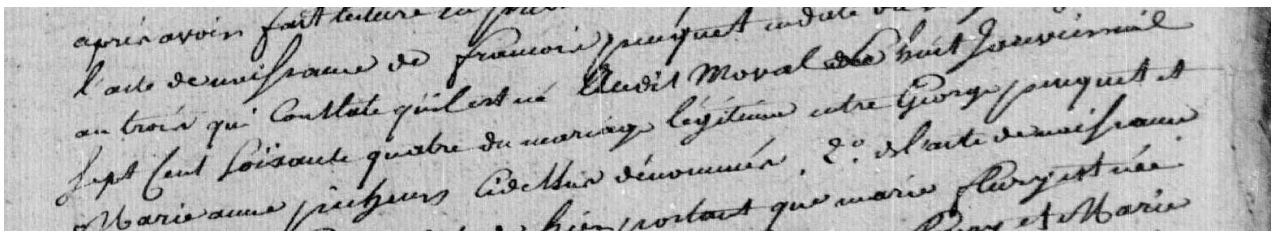 après avoir fait lecture en
l'acte de naissance de françois piequet en date du
an trois qui Constate qu'il est né audit Moval le huit Janvier mil
sept Cent soixante quatre du mariage légitime entre George piequet et
Marie anne pecheur Cidessus dénommés. 2.° de l'acte de naissance
bien portant que marie fleury est née
et Marie